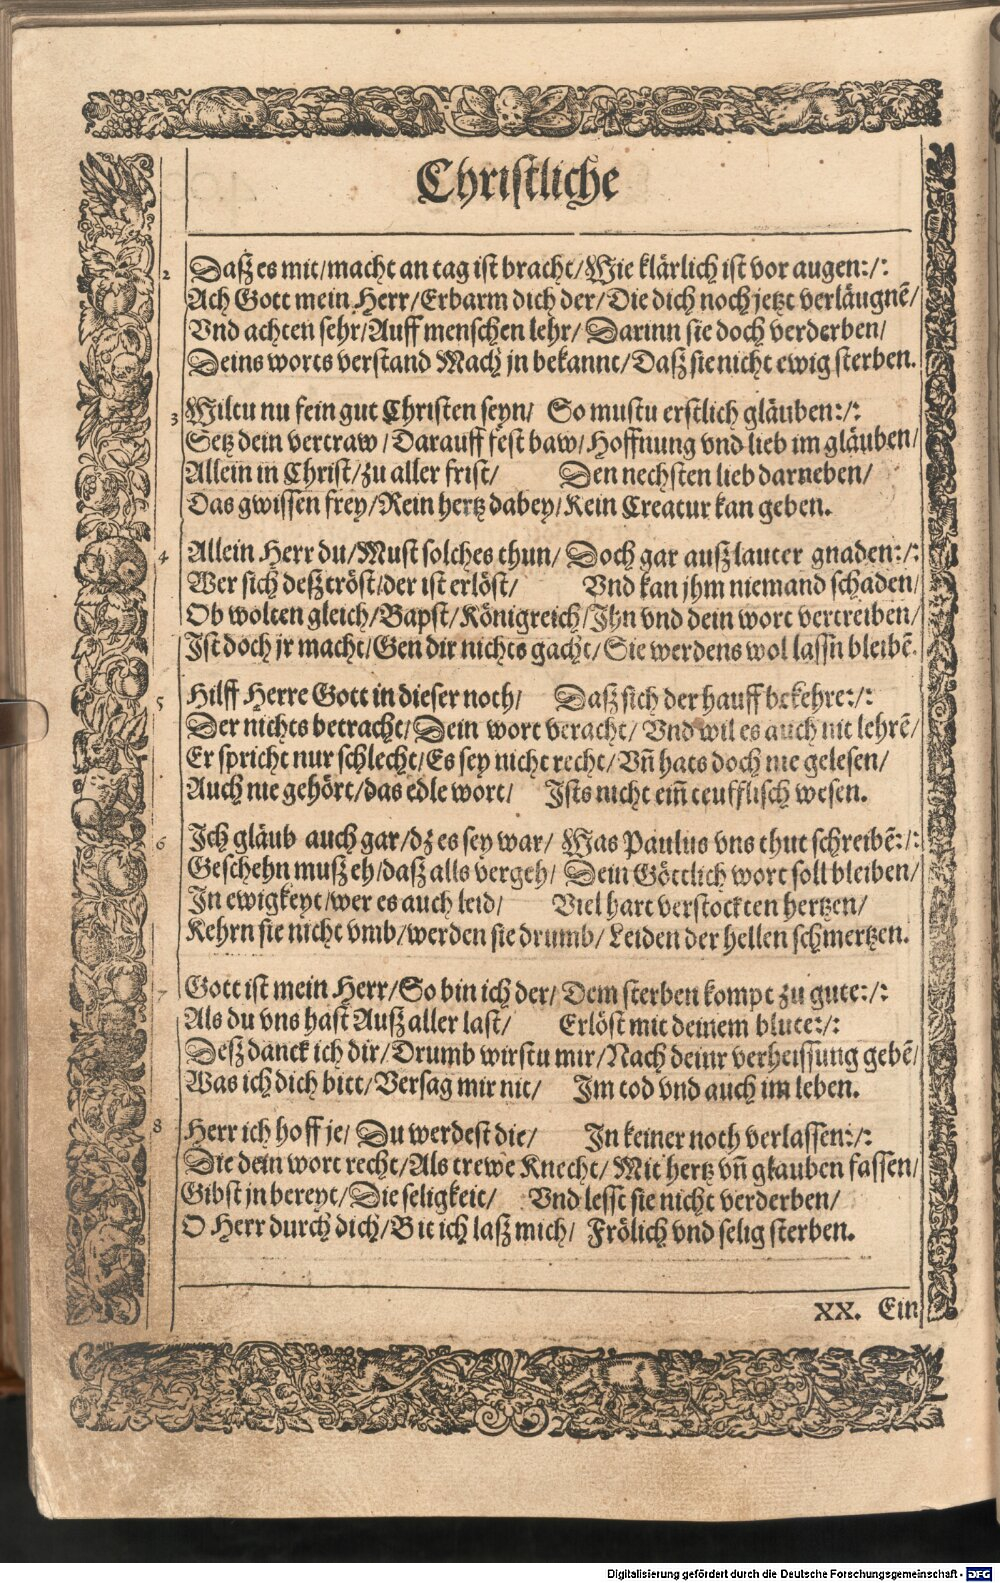 Christliche
2 Daß es mit/macht an tag ist bracht/Wie klärlich ist vor augen:/:
Ach Gott mein Herr/Erbarm dich der/Die dich noch jetzt verläugnẽ/
Vnd achten sehr/Auff menschen lehr/ Darinn sie doch verderben/
Deins worts verstand Mach jn bekannt/Daß sie nicht ewig sterben.
3 Wiltu nu fein gut Christen seyn/ So mustu erstlich gläuben:/:
Setz dein vertraw/Darauff fest baw/Hoffnung vnd lieb im gläuben/
Allein in Christ/zu aller frist/ Den nechsten lieb darneben/
Das gwissen frey/Rein hertz dabey/Kein Creatur kan geben.
4 Allein Herr du/Must solches thun/ Doch gar auß lauter gnaden:/:
Wer sich deß tröst/der ist erlöst/ Vnd kan jhm niemand schaden/
Ob wolten gleich/Bapst/Königreich/Ihn vnd dein wort vertreiben/
Ist doch jr macht/Gen dir nichts gacht/Sie werdens wol lassn bleibẽ.
5 Hilff Herre Gott in dieser noth/ Daß sich der hauff bekehre:/:
Der nichts betracht/Dein wort veracht/ Vnd wil es auch nit lehrẽ/
Er spricht nur schlecht/Es sey nicht recht/Vñ hats doch nie gelesen/
Auch nie gehört/das edle wort/ Ists nicht eiñ teufflisch wesen.
6 Ich gläub auch gar/dz es sey war/ Was Paulus vns thut schreibẽ:/:
Geschehn muß eh/daß alls vergeh/ Dein Göttlich wort soll bleiben/
In ewigkeyt/wer es auch leid/ Viel hart verstockten hertzen/
Kehrn sie nicht vmb/werden sie drumb/ Leiden der hellen schmertzen.
7 Gott ist mein Herr/So bin ich der/Dem sterben kompt zu gute:/:
Als du vns hast Auß aller last/ Erlöst mit deinem blute:/:
Deß danck ich dir/Drumb wirstu mir/Nach deinr verheissung gebẽ/
Was ich dich bitt/Versag mir nit/ Im tod vnd auch im leben.
8 Herr ich hoff je/ Du werdest die/ In keiner noth verlassen:/:
Die dein wort recht/Als trewe Knecht/Mit hertz vñ glauben fassen/
Gibst jn bereyt/Die seligkeit/ Vnd lesst sie nicht verderben/
O Herr durch dich/Bit ich laß mich/ Frölich vnd selig sterben.
XX. Ein
Digitalisierung gefördert durch die Deutsche Forschungsgemeinschaft - DFG